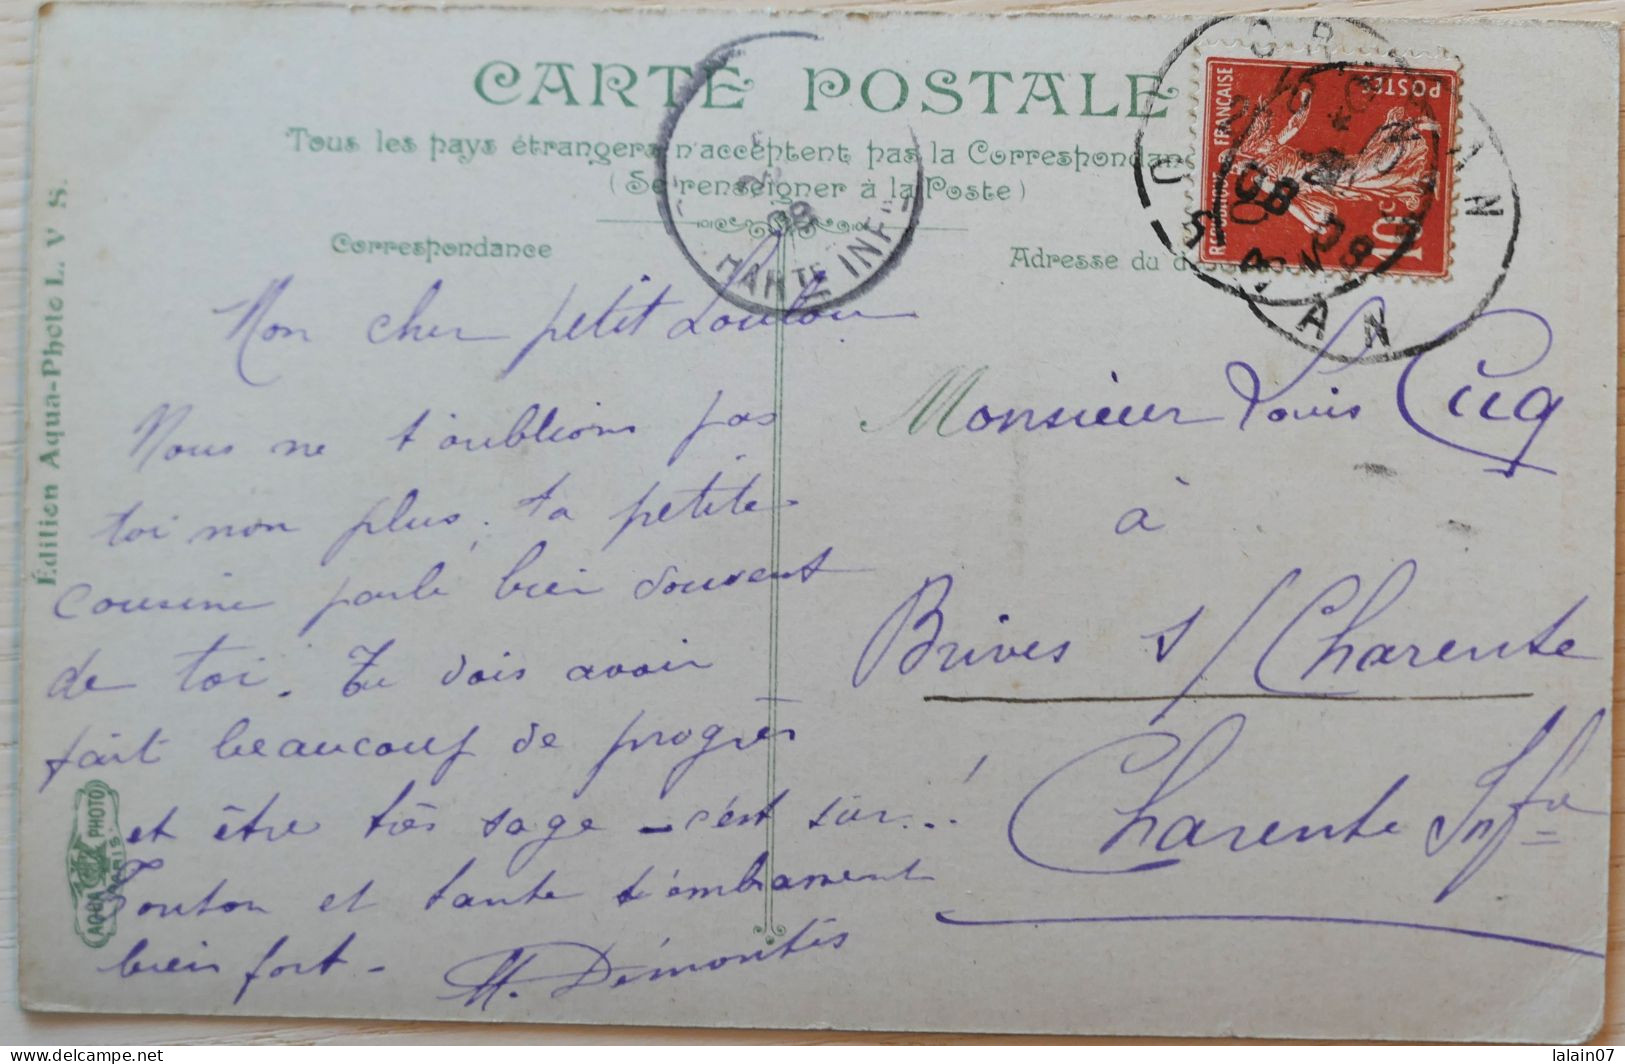 CARTE POSTALE
Tous les pays étrangers n'acceptent pas la Correspondan
(Se renseigner à la Poste)
Correspondance
Adresse du d
Édition Aqua-Photo L. V. S.
AQUA PHOTO
PARIS
REPUBLIQUE FRANÇAISE
POSTES
10c
08
HARTE INF
ORAN
ORAN
08
Mon cher petit Loulou
Nous ne t'oublions pas
toi non plus. ta petite
cousine parle bien souvent
de toi. Tu dois avoir
fait beaucoup de progrès
et être très sage – c'est sûr...!
Tonton et tante t'embrassent
bien fort –
M. Démontès
Monsieur Louis Cuq
à
Brives s/Charente
Charente Infre
lalain07